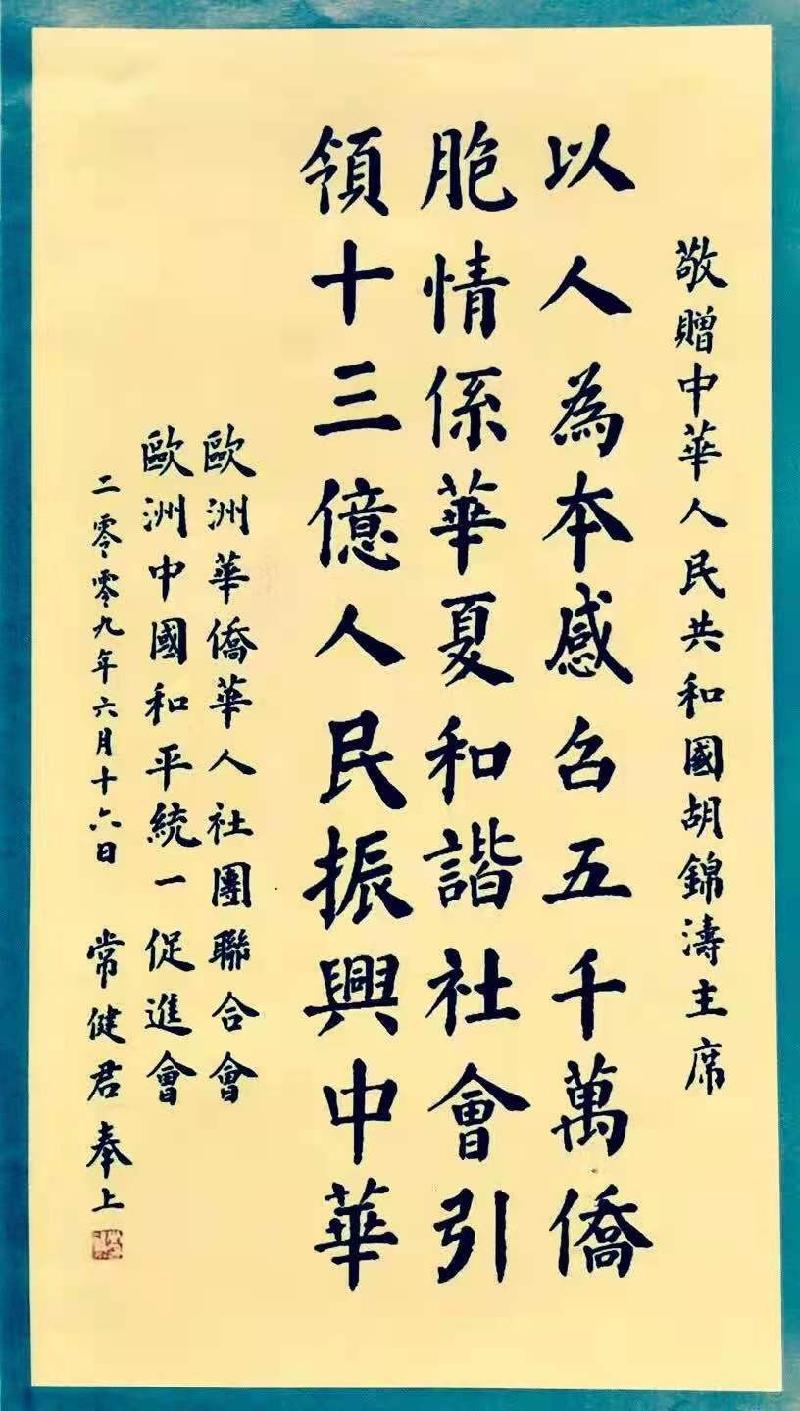 敬贈中華人民共和國胡錦濤主席
以人為本感召五千萬僑
胞情係華夏和諧社會引
領十三億人民振興中華
歐洲華僑華人社團聯合會
歐洲中國和平統一促進會
二零零九年六月十六日 常健君奉上